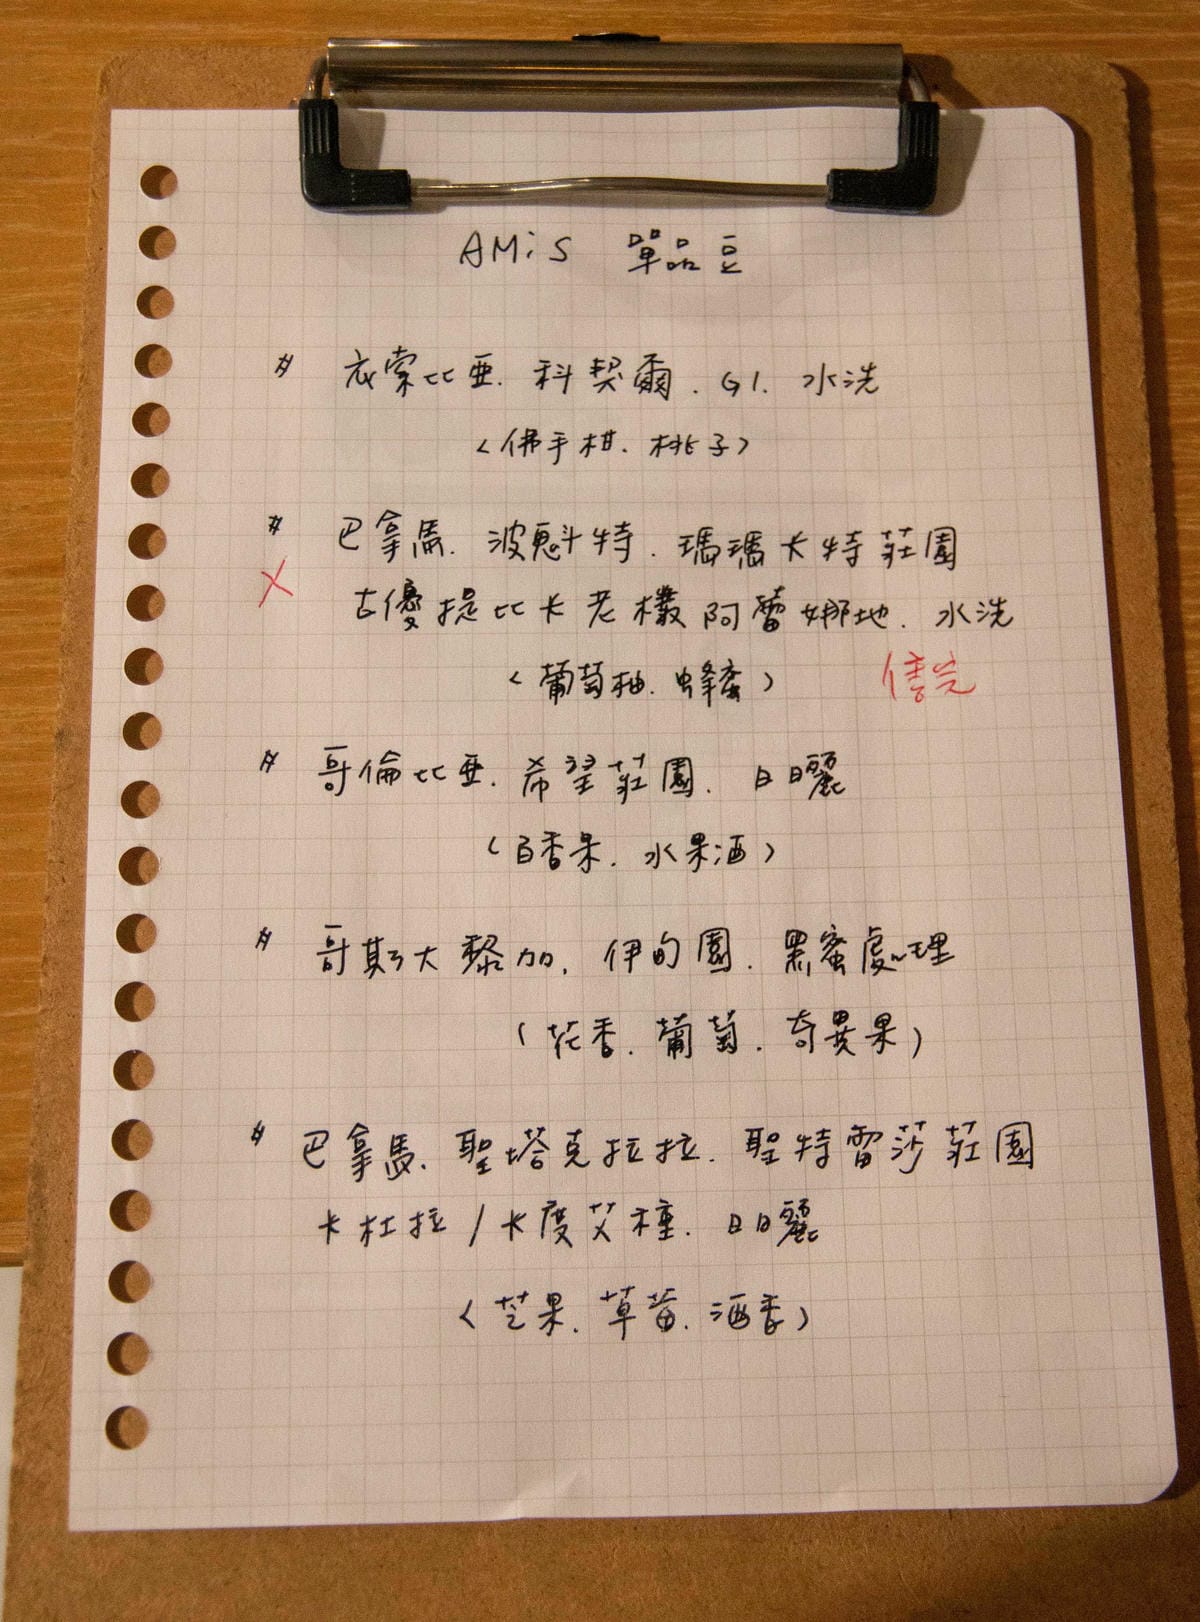 AMiS 單品豆
# 衣索比亞. 科契爾. G1. 水洗
(佛手柑. 桃子)
# 巴拿馬. 波魁特. 瑪瑪卡特莊園
X 古優提比卡老欉阿蕾娜地. 水洗
(葡萄柚. 蜂蜜) 售完
# 哥倫比亞. 希望莊園. 日曬
(百香果. 水果酒)
# 哥斯大黎加. 伊的園. 黑蜜處理
(花香. 葡萄. 奇異果)
# 巴拿馬. 聖塔克拉拉. 聖特雷莎莊園
卡杜拉/卡度艾種. 日曬
(芒果. 草莓. 酒香)